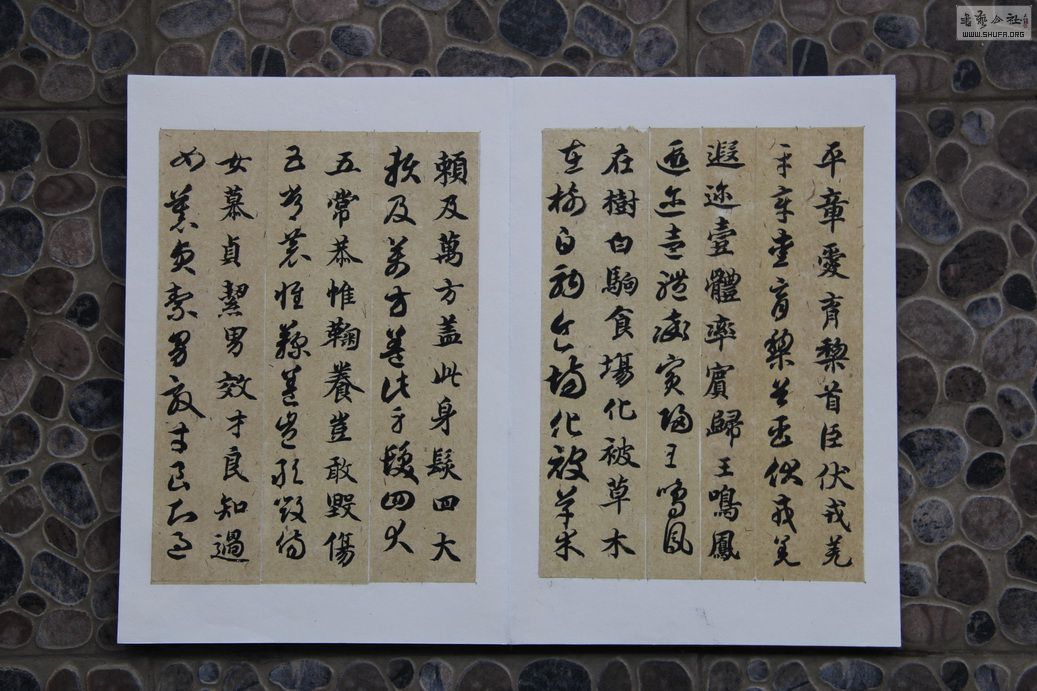 平章愛育黎首臣伏戎羌
平章愛育黎首臣伏戎羌
遐迩壹體率賓歸王鳴鳳
遐迩壹體率賓歸王鳴鳳
在樹白駒食場化被草木
在樹白駒食場化被草木
賴及萬方盖此身髮四大
賴及萬方盖此身髮四大
五常恭惟鞠養豈敢毀傷
五常恭惟鞠養豈敢毀傷
女慕貞絜男效才良知過
女慕貞絜男效才良知過
书艺公社
WWW.SHUFA.ORG